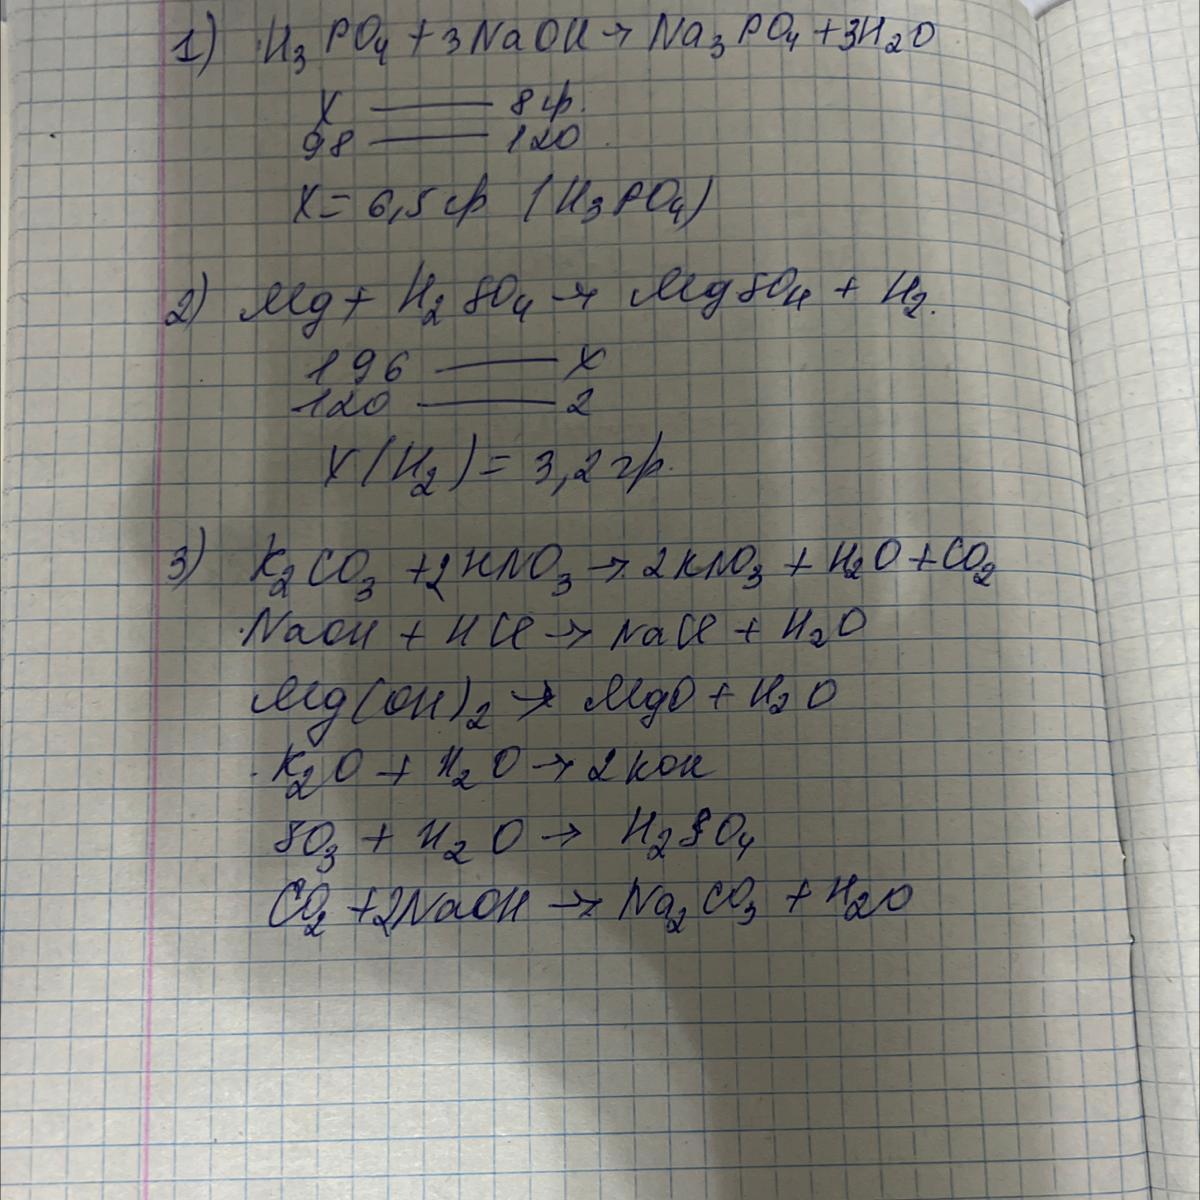 1) H₃PO₄ + 3NaOH → Na₃PO₄ + 3H₂O
X — 8 гр.
98 — 120
X = 6,5 гр (H₃PO₄)
2) Mg + H₂SO₄ → MgSO₄ + H₂.
196 — X
120 — 2
X(H₂) = 3,2 гр.
3) K₂CO₃ + 2HNO₃ → 2KNO₃ + H₂O + CO₂
NaOH + HCl → NaCl + H₂O
Mg(OH)₂ → MgO + H₂O
K₂O + H₂O → 2KOH
SO₃ + H₂O → H₂SO₄
CO₂ + 2NaOH → Na₂CO₃ + H₂O